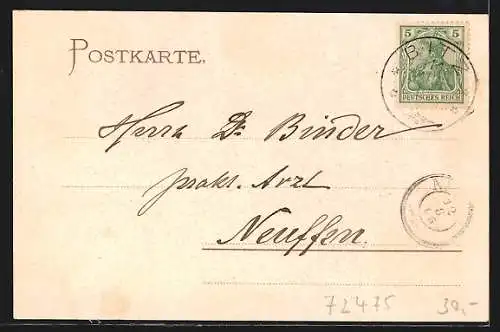 POSTKARTE.
5 5
DEUTSCHES REICH
BITZ
Herrn Dr Binder
prakt. Arzt
Neuffen.
72475
30,-